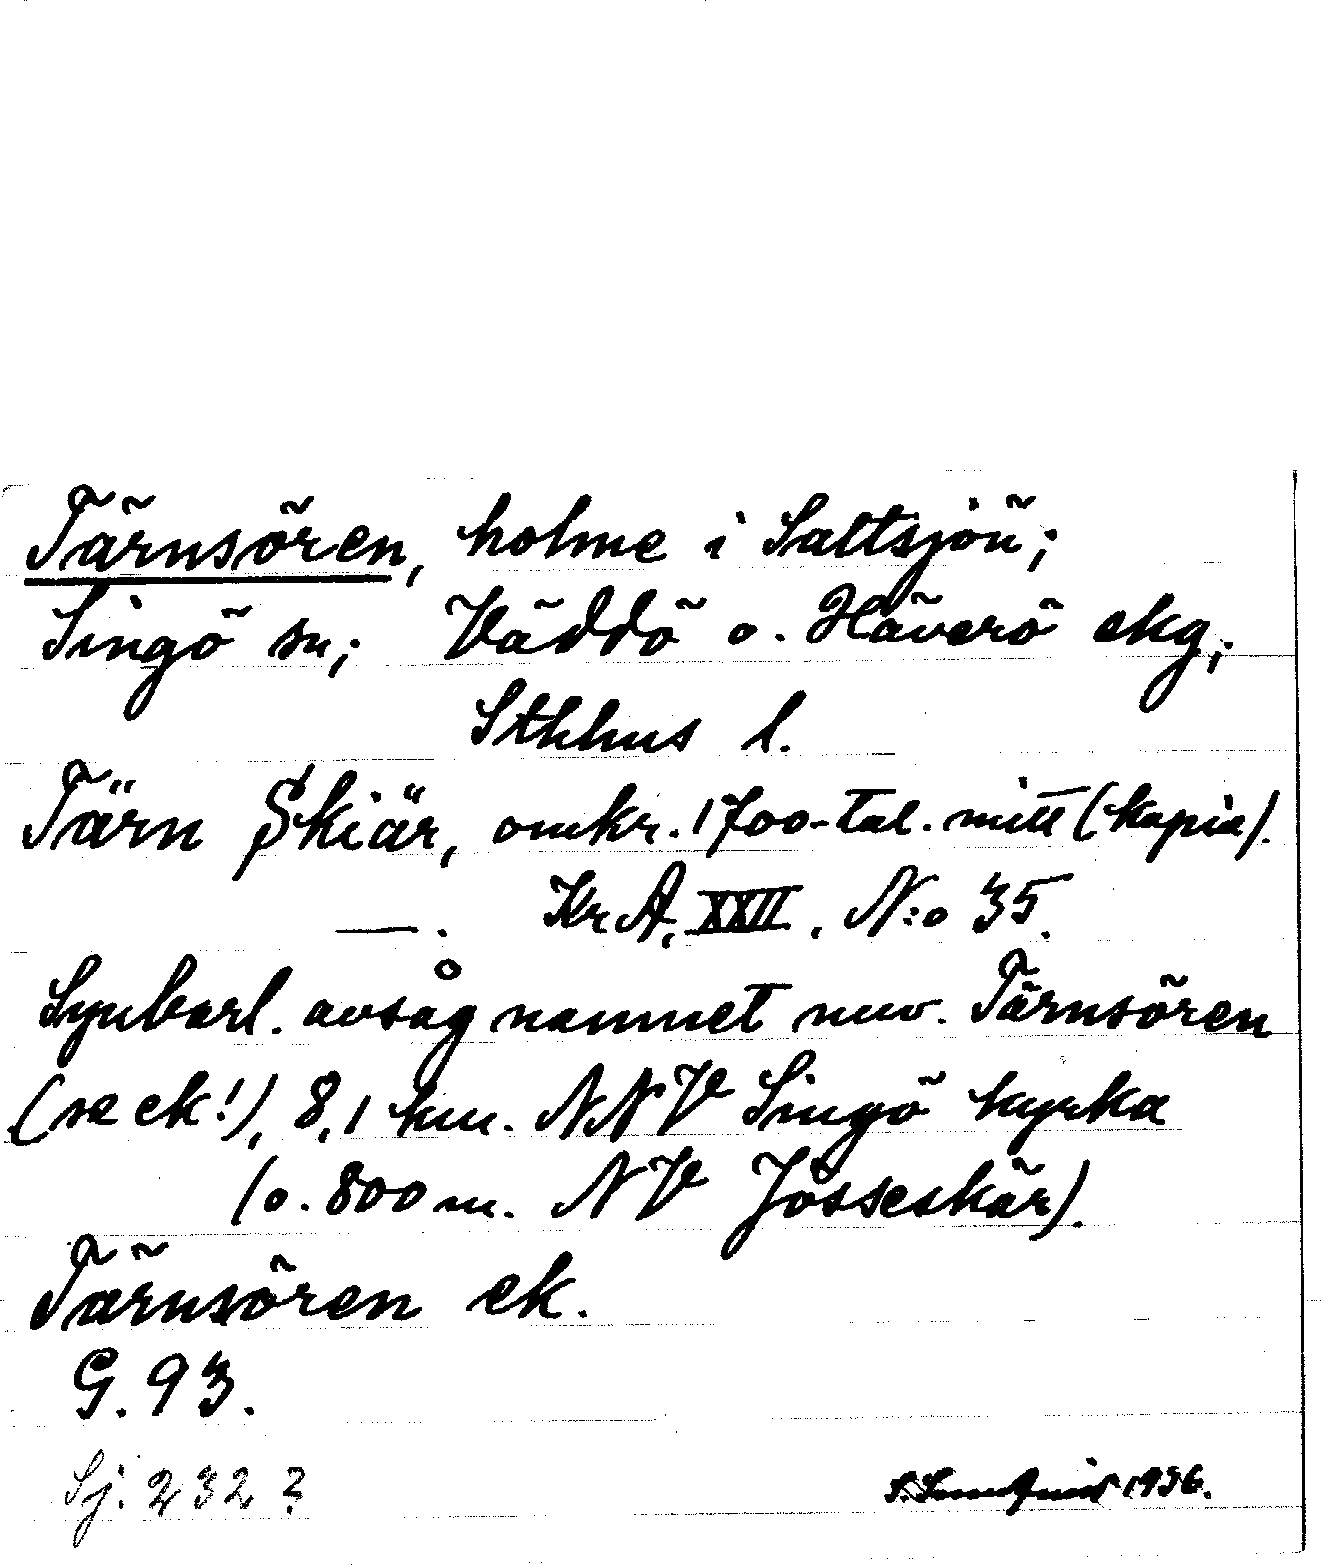 Tärnsören, holme i Saltsjön;
Singö sn; Väddö o. Häverö skg,
Sthlms l.
Tärn Skiär, omkr. 1700-tal. mitt (kopia).
—. Kr A, XXII, N:o 35.
Synbarl. avsåg namnet nuv. Tärnsören
(se ek!), 8,1 km. NNV Singö kyrka
(o. 800 m. NV Jösseskär).
Tärnsören ek.
G. 93.
Sj. 232?
1936.